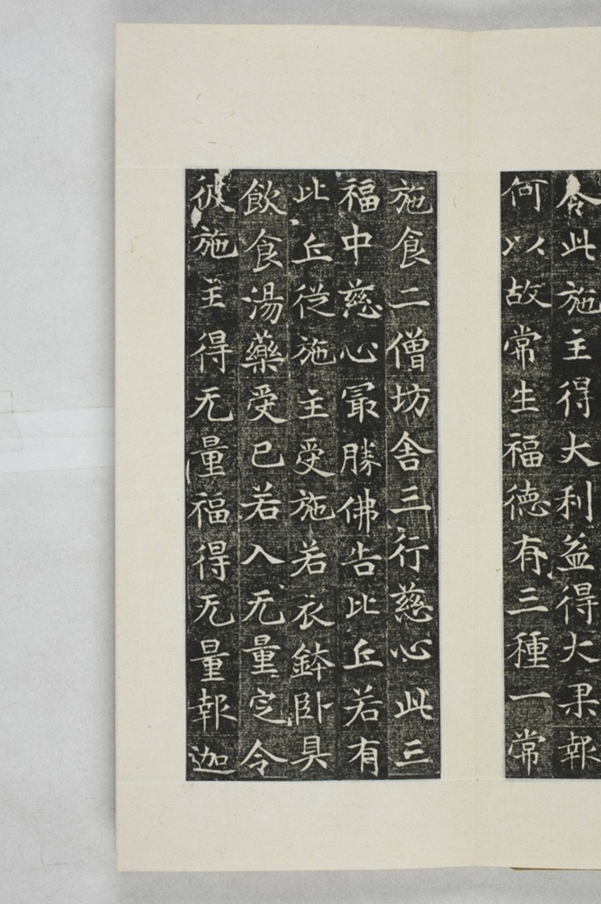 令此施主得大利益得大果報
何以故常生福德有三種一常
施食二僧坊舍三行慈心此三
福中慈心冣勝佛告比丘若有
比丘從施主受施若衣鉢卧具
飲食湯藥受已若入无量定令
彼施主得无量福得无量報迦